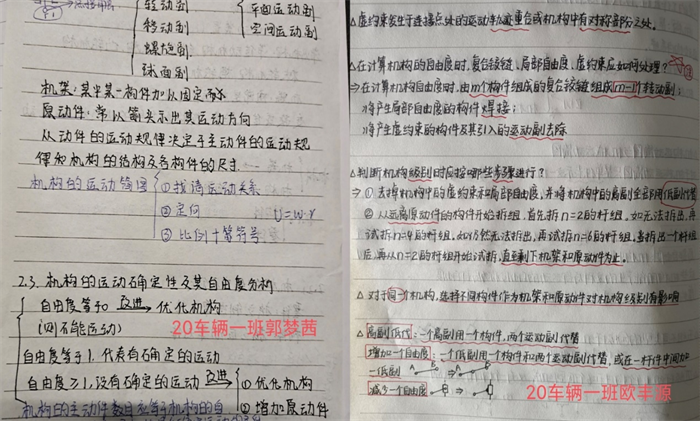 转动副
移动副
螺旋副
球面副
平面运动副
空间运动副
机架:某
构件加以固定
原动件:常以箭头示出其运动方向
从动件的运动规律决定于主动件的运动规
律和机构的结构及各构件的尺寸.
机构的运动简图
①找清运动关系
②定向
③比例+符号
2.3. 机构的运动确定性及其自由度分析
自由度等于0 改进→ 优化机构
(则不能运动)
20车辆一班郭梦茜
自由度等于1. 代表有确定的运动
自由度≥1,没有确定的运动 改进→
①优化机构
②增加原动件
机构的主动件数目应等于机构的自
△虚约束发生于连接点处的运动轨迹重合或机构中有对称部分之处。
△在计算机构的自由度时,复合铰链、局部自由度、虚约束应如何处理?
⇒在计算机构自由度时,由m个构件组成的复合铰链组成(m-1)个转动副;
将产生局部自由度的构件焊接;
将产生虚约束的构件及其引入的运动副去除
△判断机构级别时应按哪些步骤进行?
⇒①去掉机构中的虚约束和局部自由度,并将机构中的高副全部用低副代替
②从远离原动件的构件开始拆组,首先拆n=2的杆组,如无法拆出,再
试拆n=4的杆组,如仍然无法拆出,再试拆n=6的杆组,当拆出一个杆组
后,再从n=2的杆组开始试拆,直至剩下机架和原动件为止。
△对于同一个机构,选择不同构件作为机架和原动件对机构级别有影响
△高副低代:一个高副用一个构件,两个运动副代替
增加一个自由度:一个低副用一个构件和两个运动副代替,或在一杆件中间加
一低副
减少一个自由度
20车辆一班欧丰源